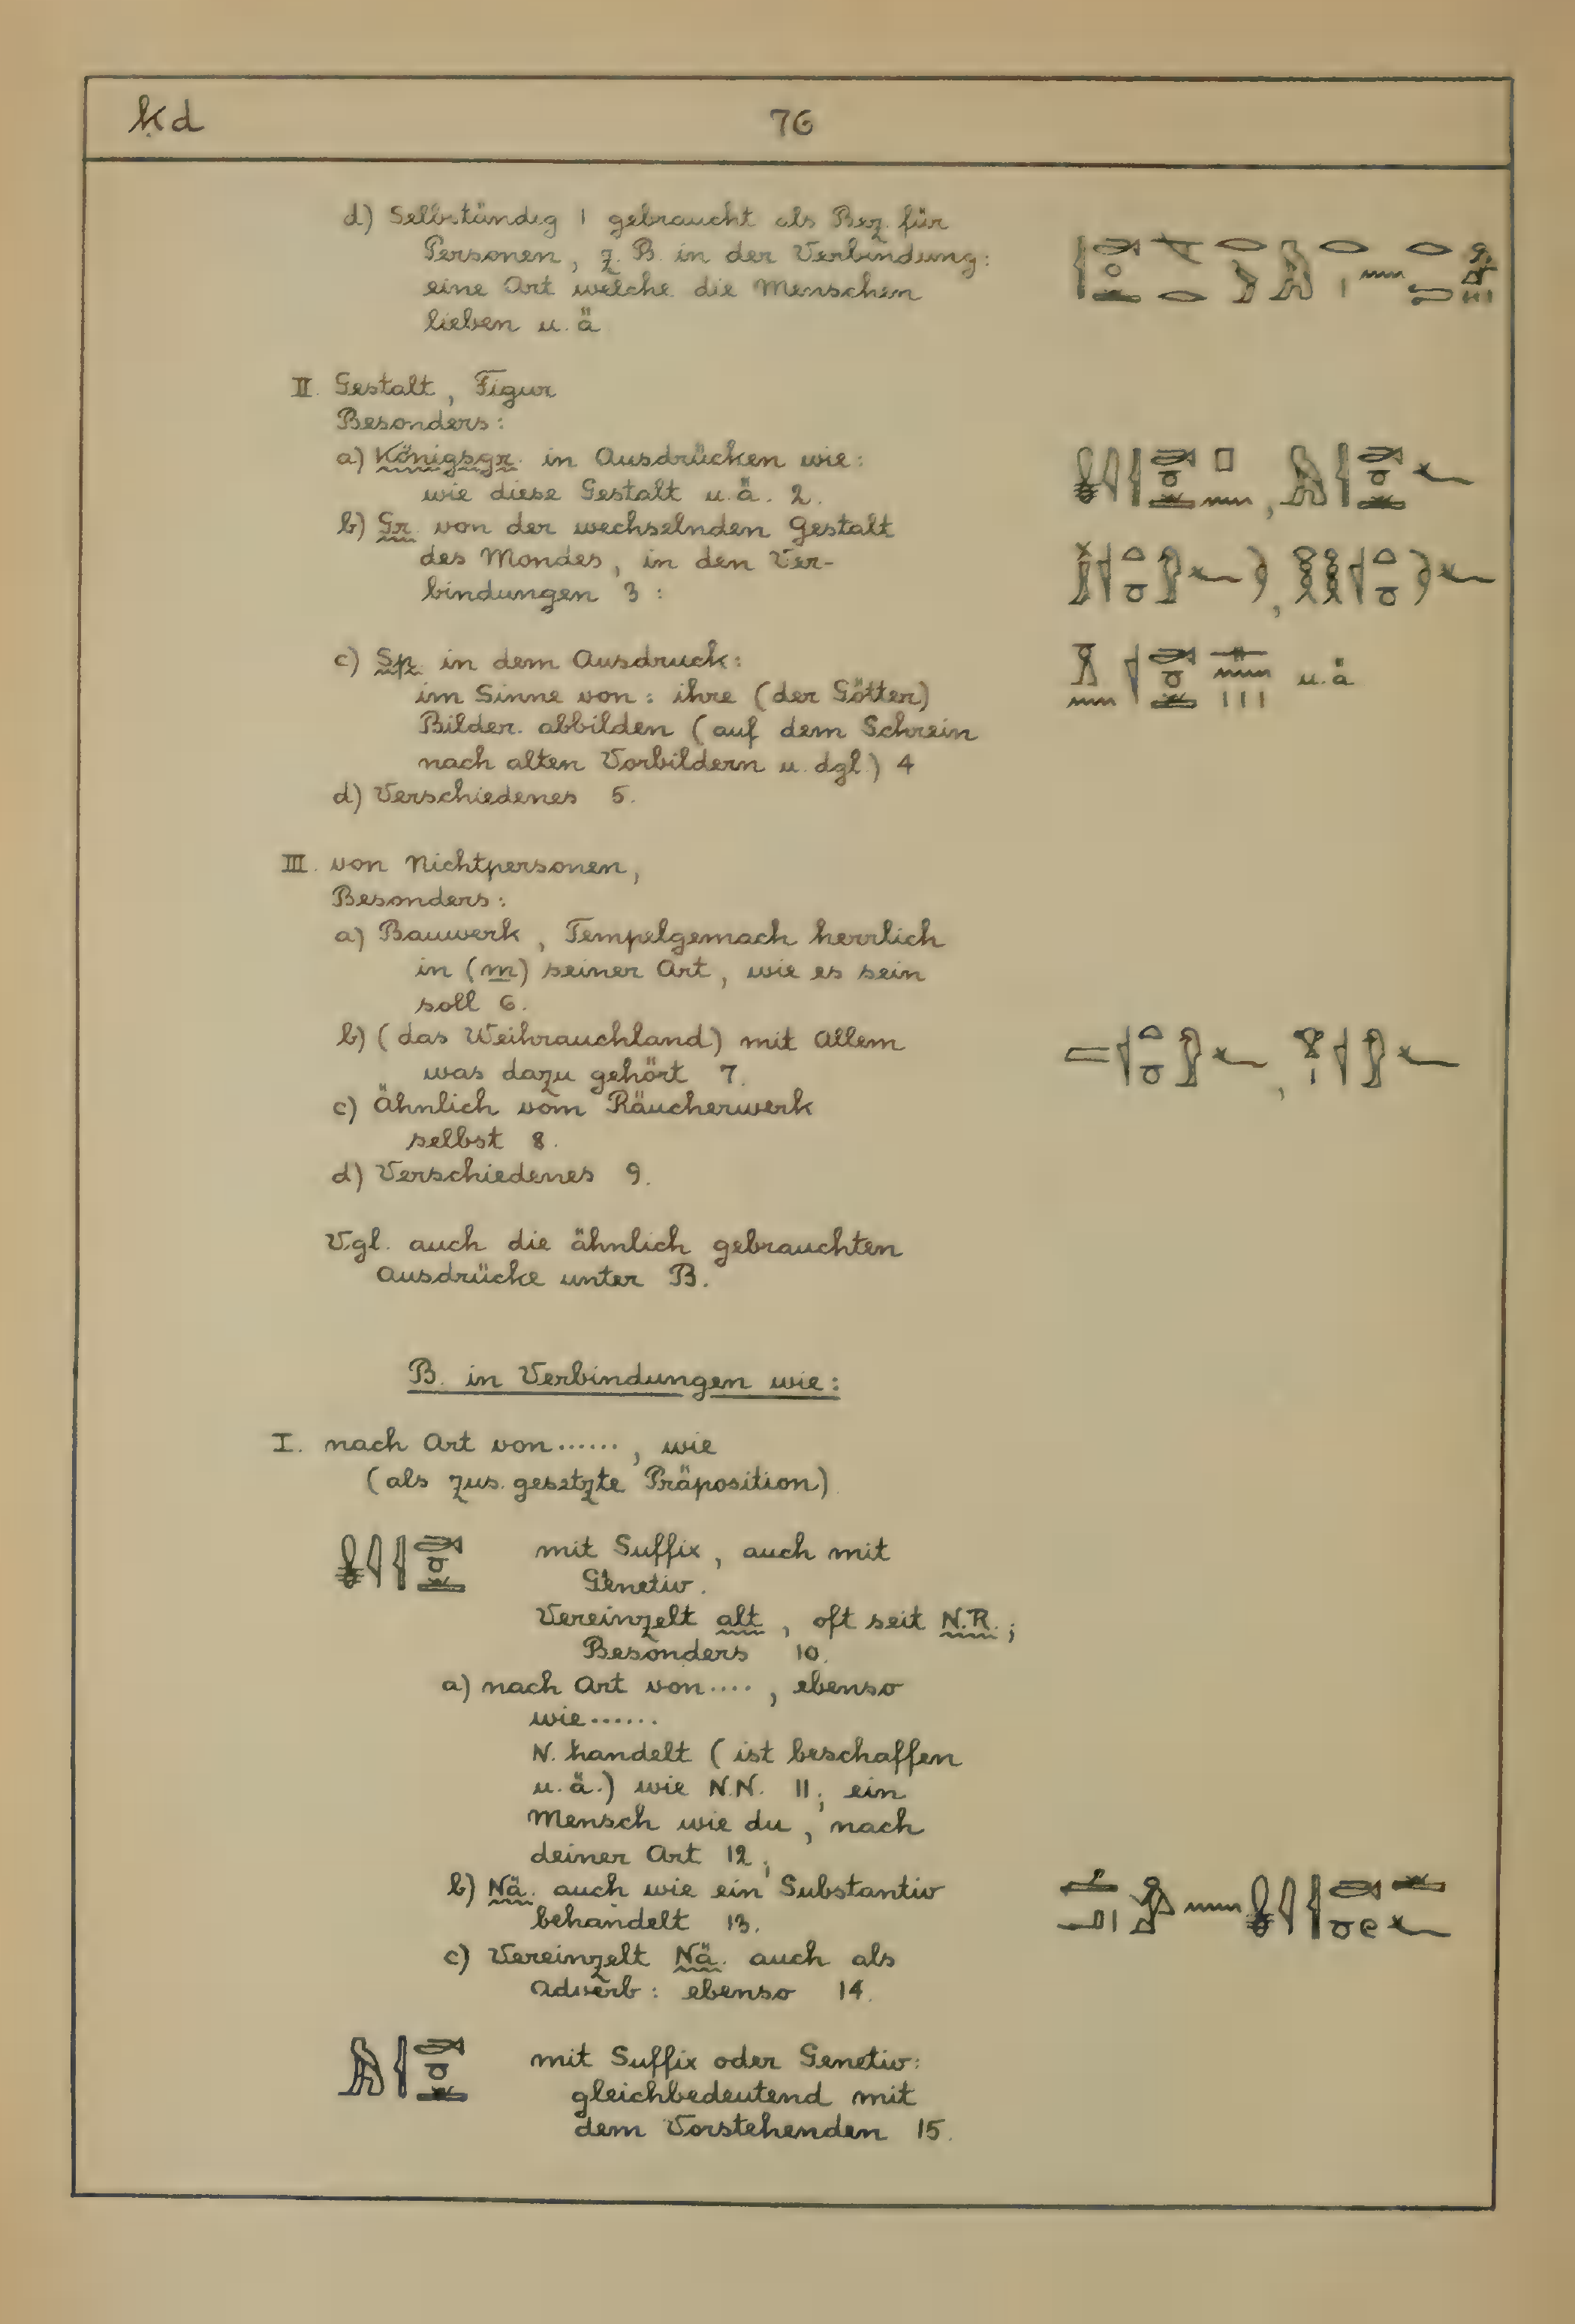 ḳd
76
d) Selbständig 1 gebraucht als Bez. für
Personen, z. B. in der Verbindung:
eine Art welche die Menschen
lieben u. ä
II. Gestalt, Figur
Besonders:
a) Königsgr. in Ausdrücken wie:
wie diese Gestalt u. ä. 2.
b) Gr. von der wechselnden Gestalt
des Mondes, in den Ver-
bindungen 3 :
c) Sp. in dem Ausdruck:
u. ä
im Sinne von: ihre (der Götter)
Bilder. abbilden (auf dem Schrein
nach alten Vorbildern u. dgl.) 4
d) Verschiedenes 5.
III. von Nichtpersonen,
Besonders:
a) Bauwerk, Tempelgemach herrlich
in (m) seiner Art, wie es sein
soll 6.
b) (das Weihrauchland) mit Allem
was dazu gehört 7.
c) Ähnlich vom Räucherwerk
selbst 8.
d) Verschiedenes 9.
Vgl. auch die ähnlich gebrauchten
Ausdrücke unter B.
B. in Verbindungen wie:
I. nach Art von ......, wie
(als zus. gesetzte Präposition)
mit Suffix, auch mit
Genetiv.
Vereinzelt alt, oft seit N.R.;
Besonders 10.
a) nach Art von ...., ebenso
wie ......
N. handelt (ist beschaffen
u. ä.) wie N.N. 11; ein
Mensch wie du, nach
deiner Art 12;
b) Nä. auch wie ein Substantiv
behandelt 13.
c) Vereinzelt Nä. auch als
Adverb: ebenso 14.
mit Suffix oder Genetiv:
gleichbedeutend mit
dem Vorstehenden 15.